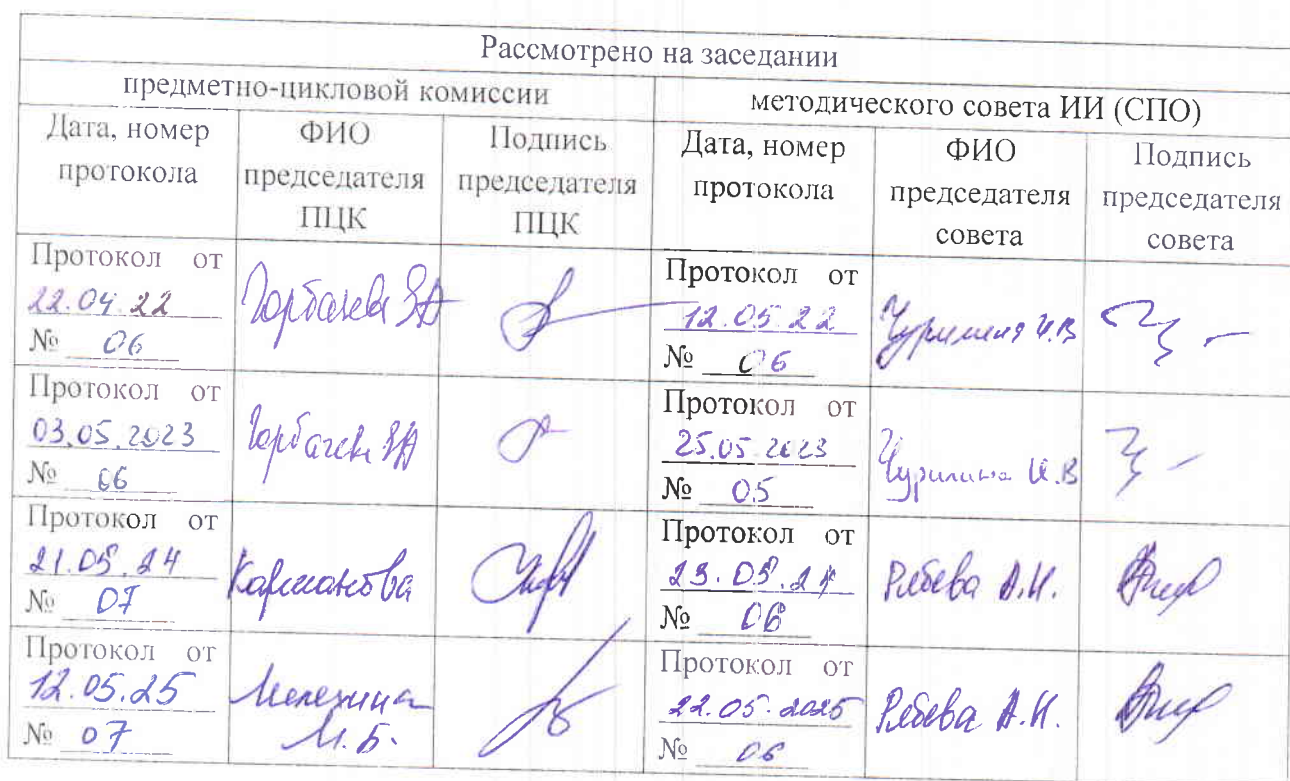 Рассмотрено на заседании
предметно-цикловой комиссии
методического совета ИИ (СПО)
Дата, номер
протокола
ФИО
председателя
ПЦК
Подпись
председателя
ПЦК
Дата, номер
протокола
ФИО
председателя
совета
Подпись
председателя
совета
Протокол от
22.04.22
№ 06
Горбачева ЗА
Протокол от
12.05.22
№ 06
Чурилина И.В
Протокол от
03.05.2023
№ 06
Горбачева ЗА
Протокол от
25.05.2023
№ 05
Чурилина И.В
Протокол от
21.05.24
№ 07
Карманова
Протокол от
23.05.24
№ 06
А.Н.
Протокол от
12.05.25
№ 07
М.Б.
Протокол от
22.05.2025
№ 06
А.Н.